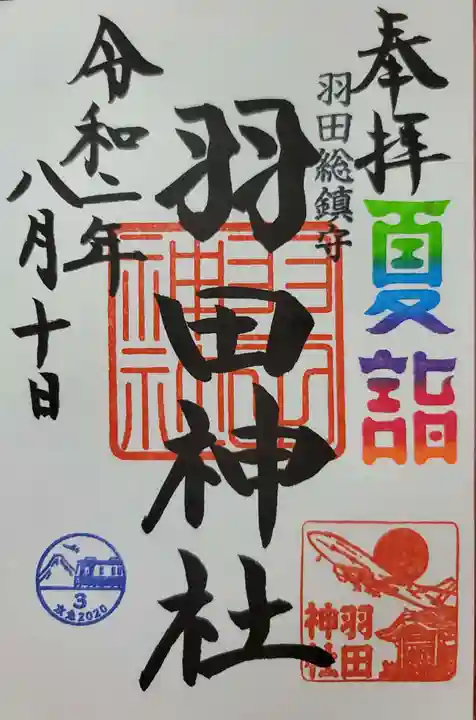 奉拝
夏詣
羽田総鎮守
羽田神社
令和二年
八月十日
羽田
神社
3
京急2020